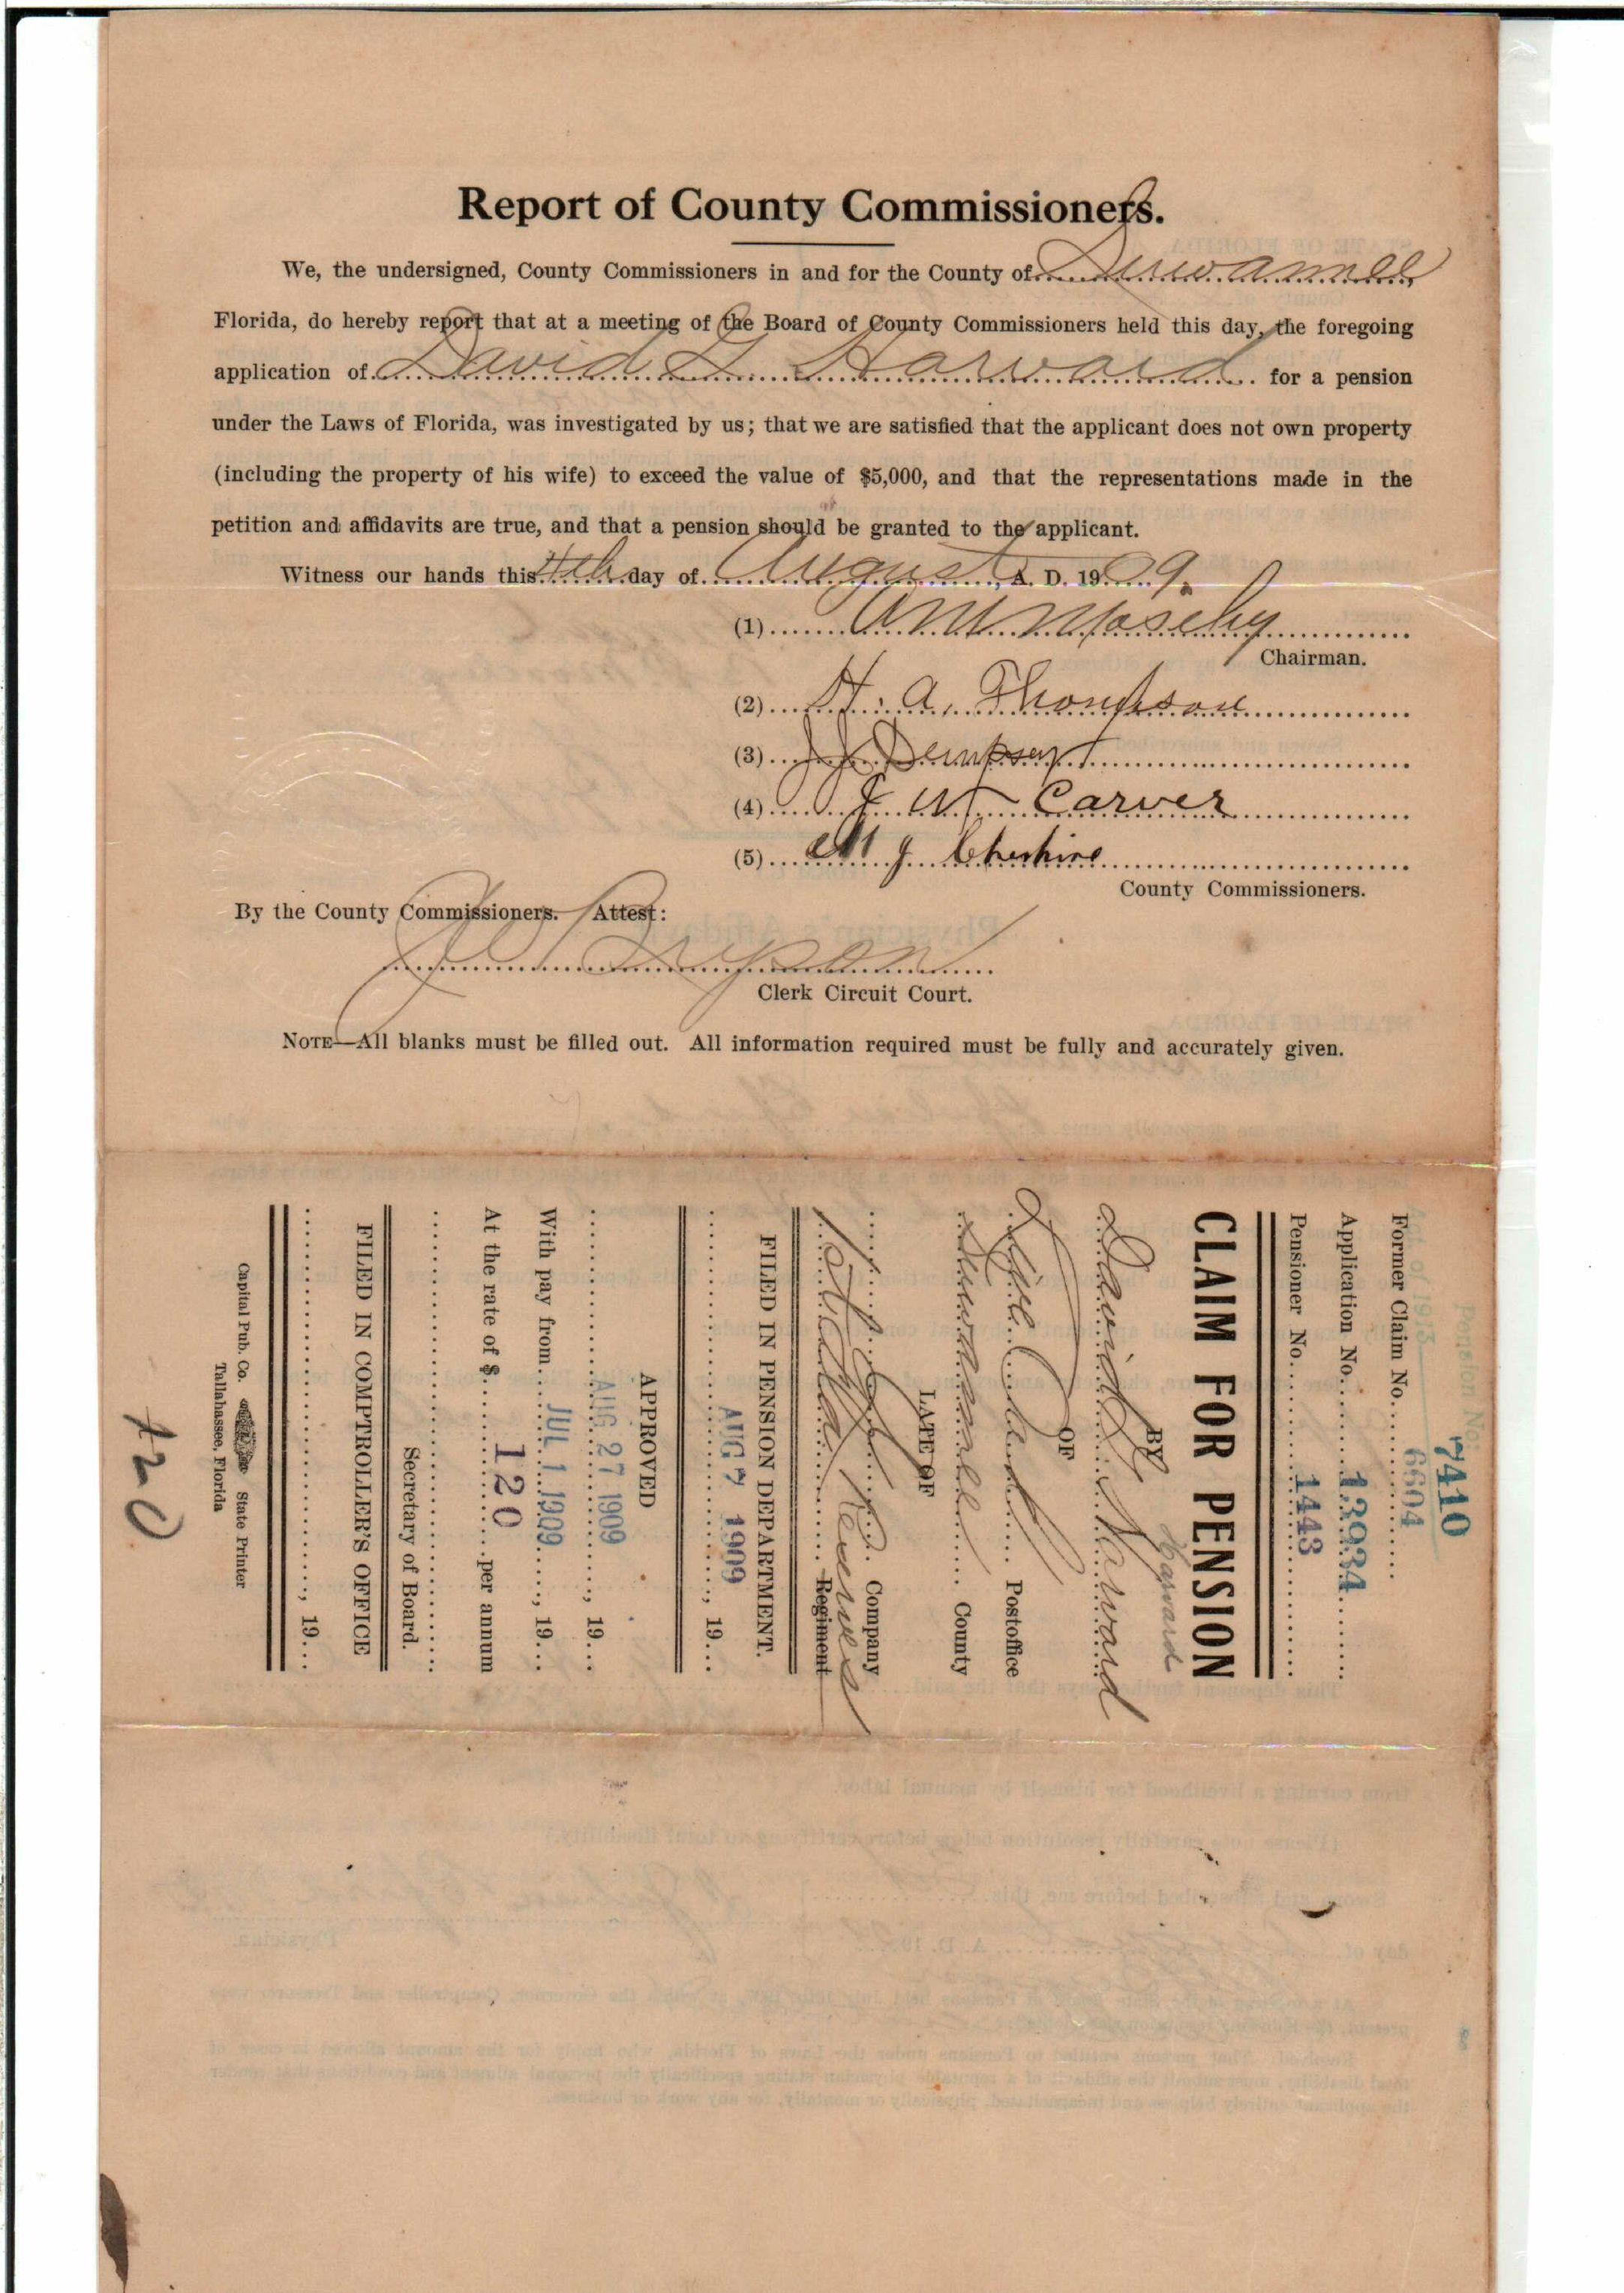 Report of County Commissioners.
We, the undersigned, County Commissioners in and for the County of Suwannee
Florida, do hereby report that at a meeting of the Board of County Commissioners held this day, the foregoing
application of David L. Harvard for a pension
under the Laws of Florida, was investigated by us; that we are satisfied that the applicant does not own property
(including the property of his wife) to exceed the value of $5,000, and that the representations made in the
petition and affidavits are true, and that a pension should be granted to the applicant.
Witness our hands this 4th day of August, A. D. 1909.
(1) Moseley
Chairman.
(2) H. A. Thompson
(3) J J Dempsey
(4) J W Carver
(5) M J Cheshire
County Commissioners.
By the County Commissioners. Attest:
Bryson
Clerk Circuit Court.
NOTE—All blanks must be filled out. All information required must be fully and accurately given.
Pension No.
7410
Act of 1913
Former Claim No. 6604
Application No. 13934
Pensioner No. 1443
CLAIM FOR PENSION
Harvard
BY
David L Harvard
OF
Live Oak Postoffice
Suwannee County
LATE OF
Company
1st Fla Reserves Regiment
FILED IN PENSION DEPARTMENT.
AUG 7 1909, 19
APPROVED
AUG 27 1909, 19
With pay from JUL 1 1909, 19
At the rate of $ 120 per annum
Secretary of Board.
FILED IN COMPTROLLER'S OFFICE
, 19
Capital Pub. Co. State Printer
Tallahassee, Florida
120